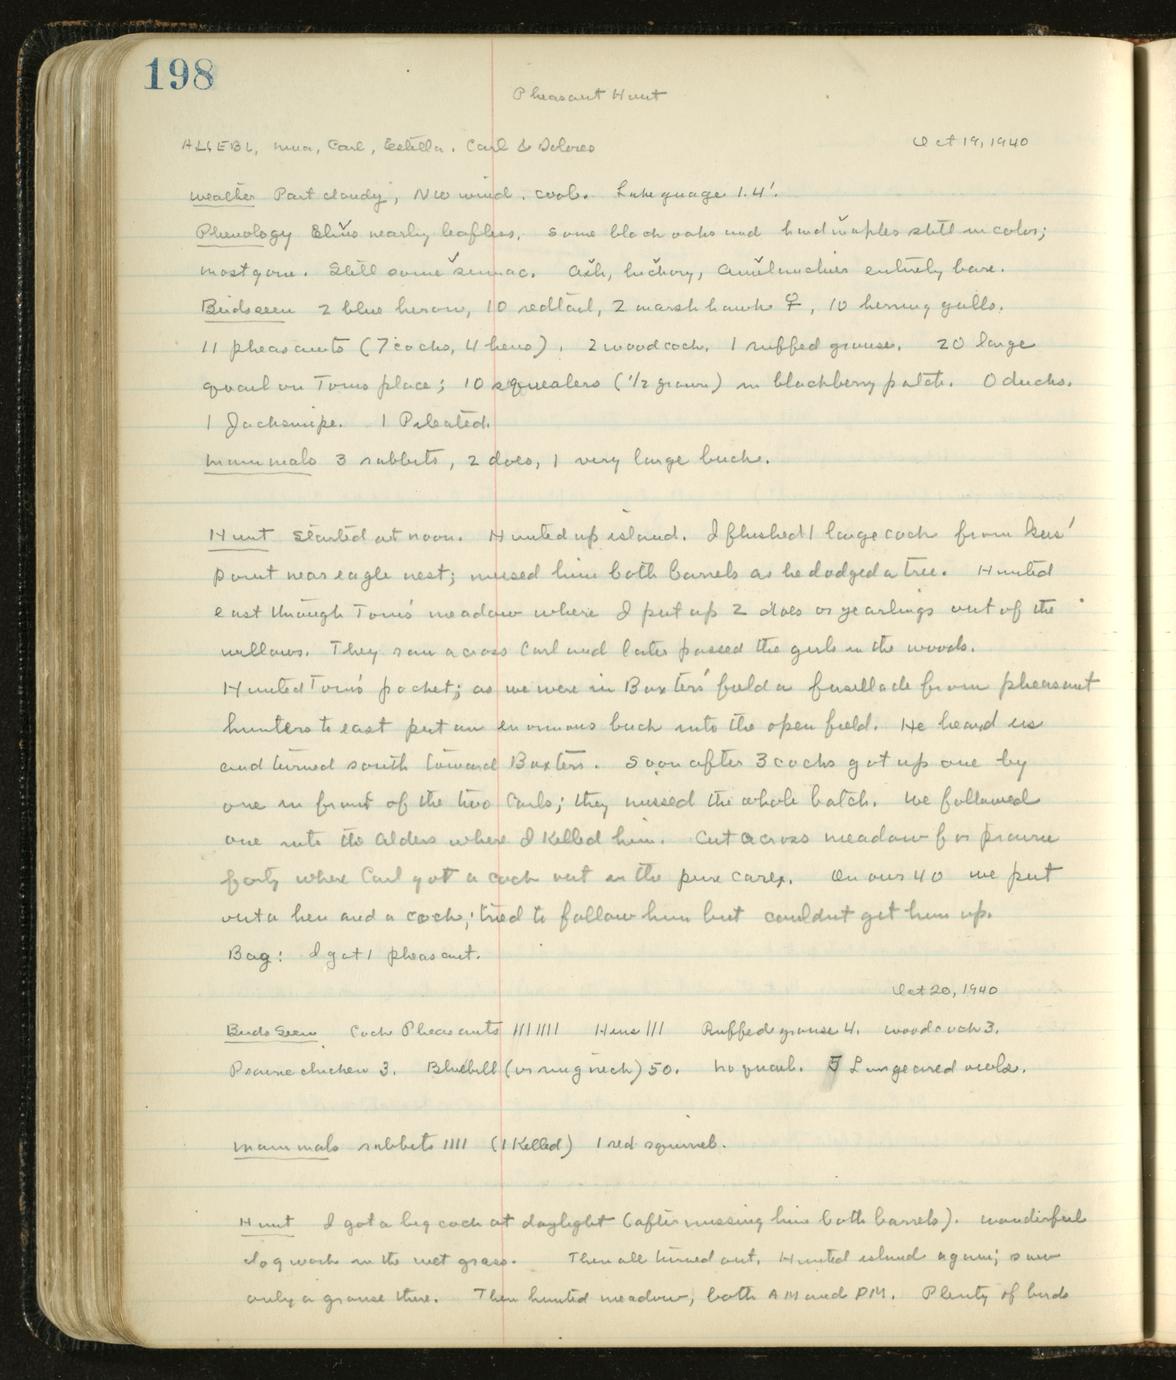 198
Pheasant Hunt
AL, EBL, Nina, Carl, Estella, Carl & Dolores Oct 19, 1940
Weather Part cloudy, NW wind. cool. Lake guage 1.4'.
Phenology Elms nearly leafless, some black oaks and hard maples still in color;
most gone. Still some sumac. Ash, hickory, Amelanchier entirely bare.
Birds seen 2 blue heron, 10 redtail, 2 marsh hawk ♀, 10 herring gulls.
11 pheasants (7 cocks, 4 hens), 2 woodcock, 1 ruffed grouse. 20 large
quail on Toms place; 10 squealers (1/2 grown) in blackberry patch. 0 ducks.
1 Jacksnipe. 1 Pileated.
Mammals 3 rabbits, 2 does, 1 very large buck.
Hunt Started at noon. Hunted up island. I flushed 1 large cock from
point near eagle nest; missed him both barrels as he dodged a tree. Hunted
east through Toms' meadow where I put up 2 does or yearlings out of the
willows. They ran across Carl and later passed the girls in the woods.
Hunted Toms' pocket; as we were in Baxters' field a fusellade from pheasant
hunters to east put an enormous buck into the open field. He heard us
and turned south toward Baxters. Soon after 3 cocks got up one by
one in front of the two Carls; they missed the whole batch. We followed
one into the alders where I killed him. Cut across meadow for prairie
forty where Carl got a cock out in the pure carex. On our 40 we put
out a hen and a cock; tried to follow him but couldnt get him up.
Bag: I got 1 pheasant.
Oct 20, 1940
Birds Seen Cock Pheasants ||| |||| Hens ||| Ruffed grouse 4. woodcock 3.
Prairie chicken 3. Bluebill (or ringneck) 50. No quail. 5 Longeared owls.
Mammals rabbits |||| (1 killed) 1 red squirrel.
Hunt I got a big cock at daylight (after missing him both barrels). Wonderful
dog work in the wet grass. Then all turned out. Hunted island again; saw
only a grouse there. Then hunted meadow, both AM and PM. Plenty of birds